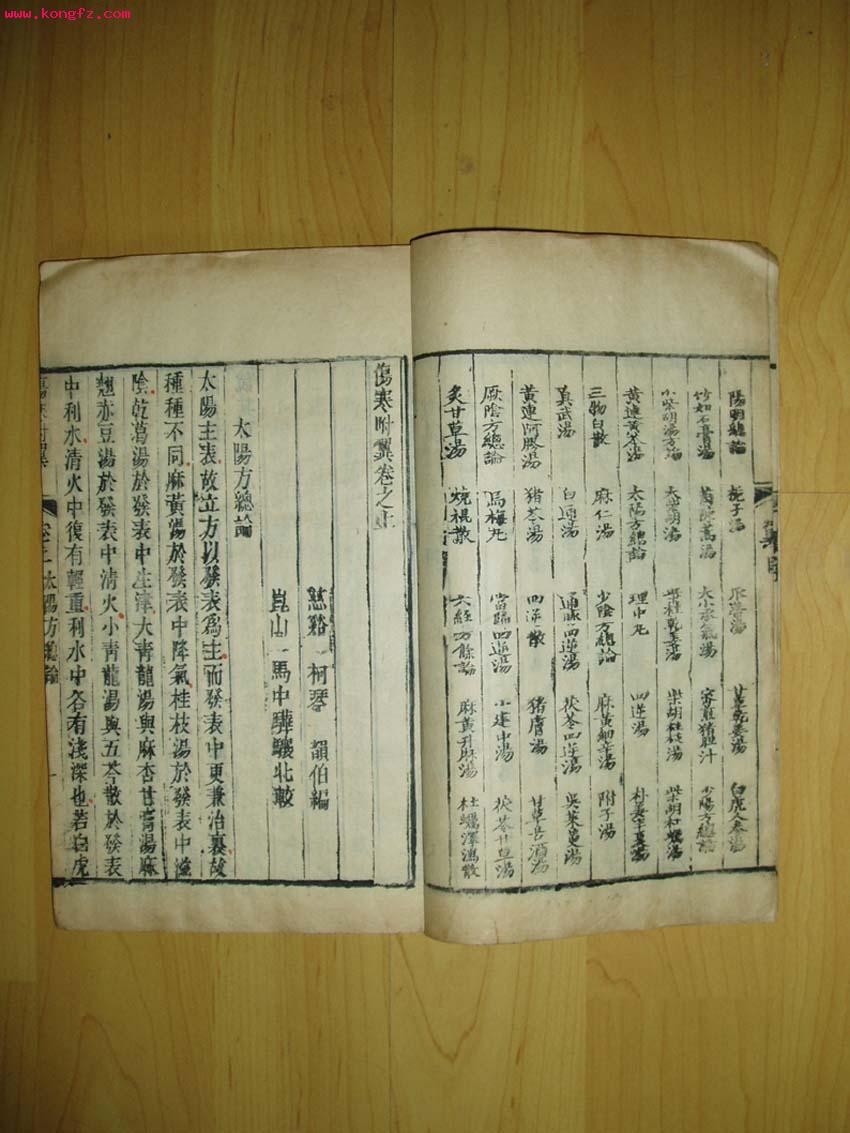 www.kongfz.com
陽明總論 梔子湯 甘草乾姜湯 白虎人參湯
竹如石膏湯 大小承氣湯 蜜煎猪胆汁 少陽方總論
小柴胡湯方論 大柴胡湯 柴桂乾姜湯 柴胡桂枝湯
黄連黄芩湯 太陽方總論 理中丸 四逆湯
三物白散 麻仁湯 少陰方總論 麻黄細辛湯 附子湯
真武湯 白通湯 通脉四逆湯 茯苓四逆湯 吳茱萸湯
黄連阿膠湯 猪苓湯 四逆散 猪膚湯 甘草苦酒湯
厥陰方總論 烏梅丸 當歸四逆湯 小建中湯 茯苓甘草湯
炙甘草湯 燒裩散 六經方餘論 麻黄升麻湯 牡蠣澤瀉散
傷寒附翼卷之上
慈谿 柯琴 韻伯編
崑山 馬中驊驤北較
太陽方總論
太陽主表故立方以發表爲主而發表中更兼治裏故
種種不同麻黄湯於發表中降氣桂枝湯於發表中滋
陰乾葛湯於發表中生津大青龍湯與麻杏甘膏湯麻
翹赤豆湯於發表中清火小青龍湯與五苓散於發表
中利水清火中復有輕重利水中各有淺深也若白虎
傷寒附翼 卷上 太陽方總論 一